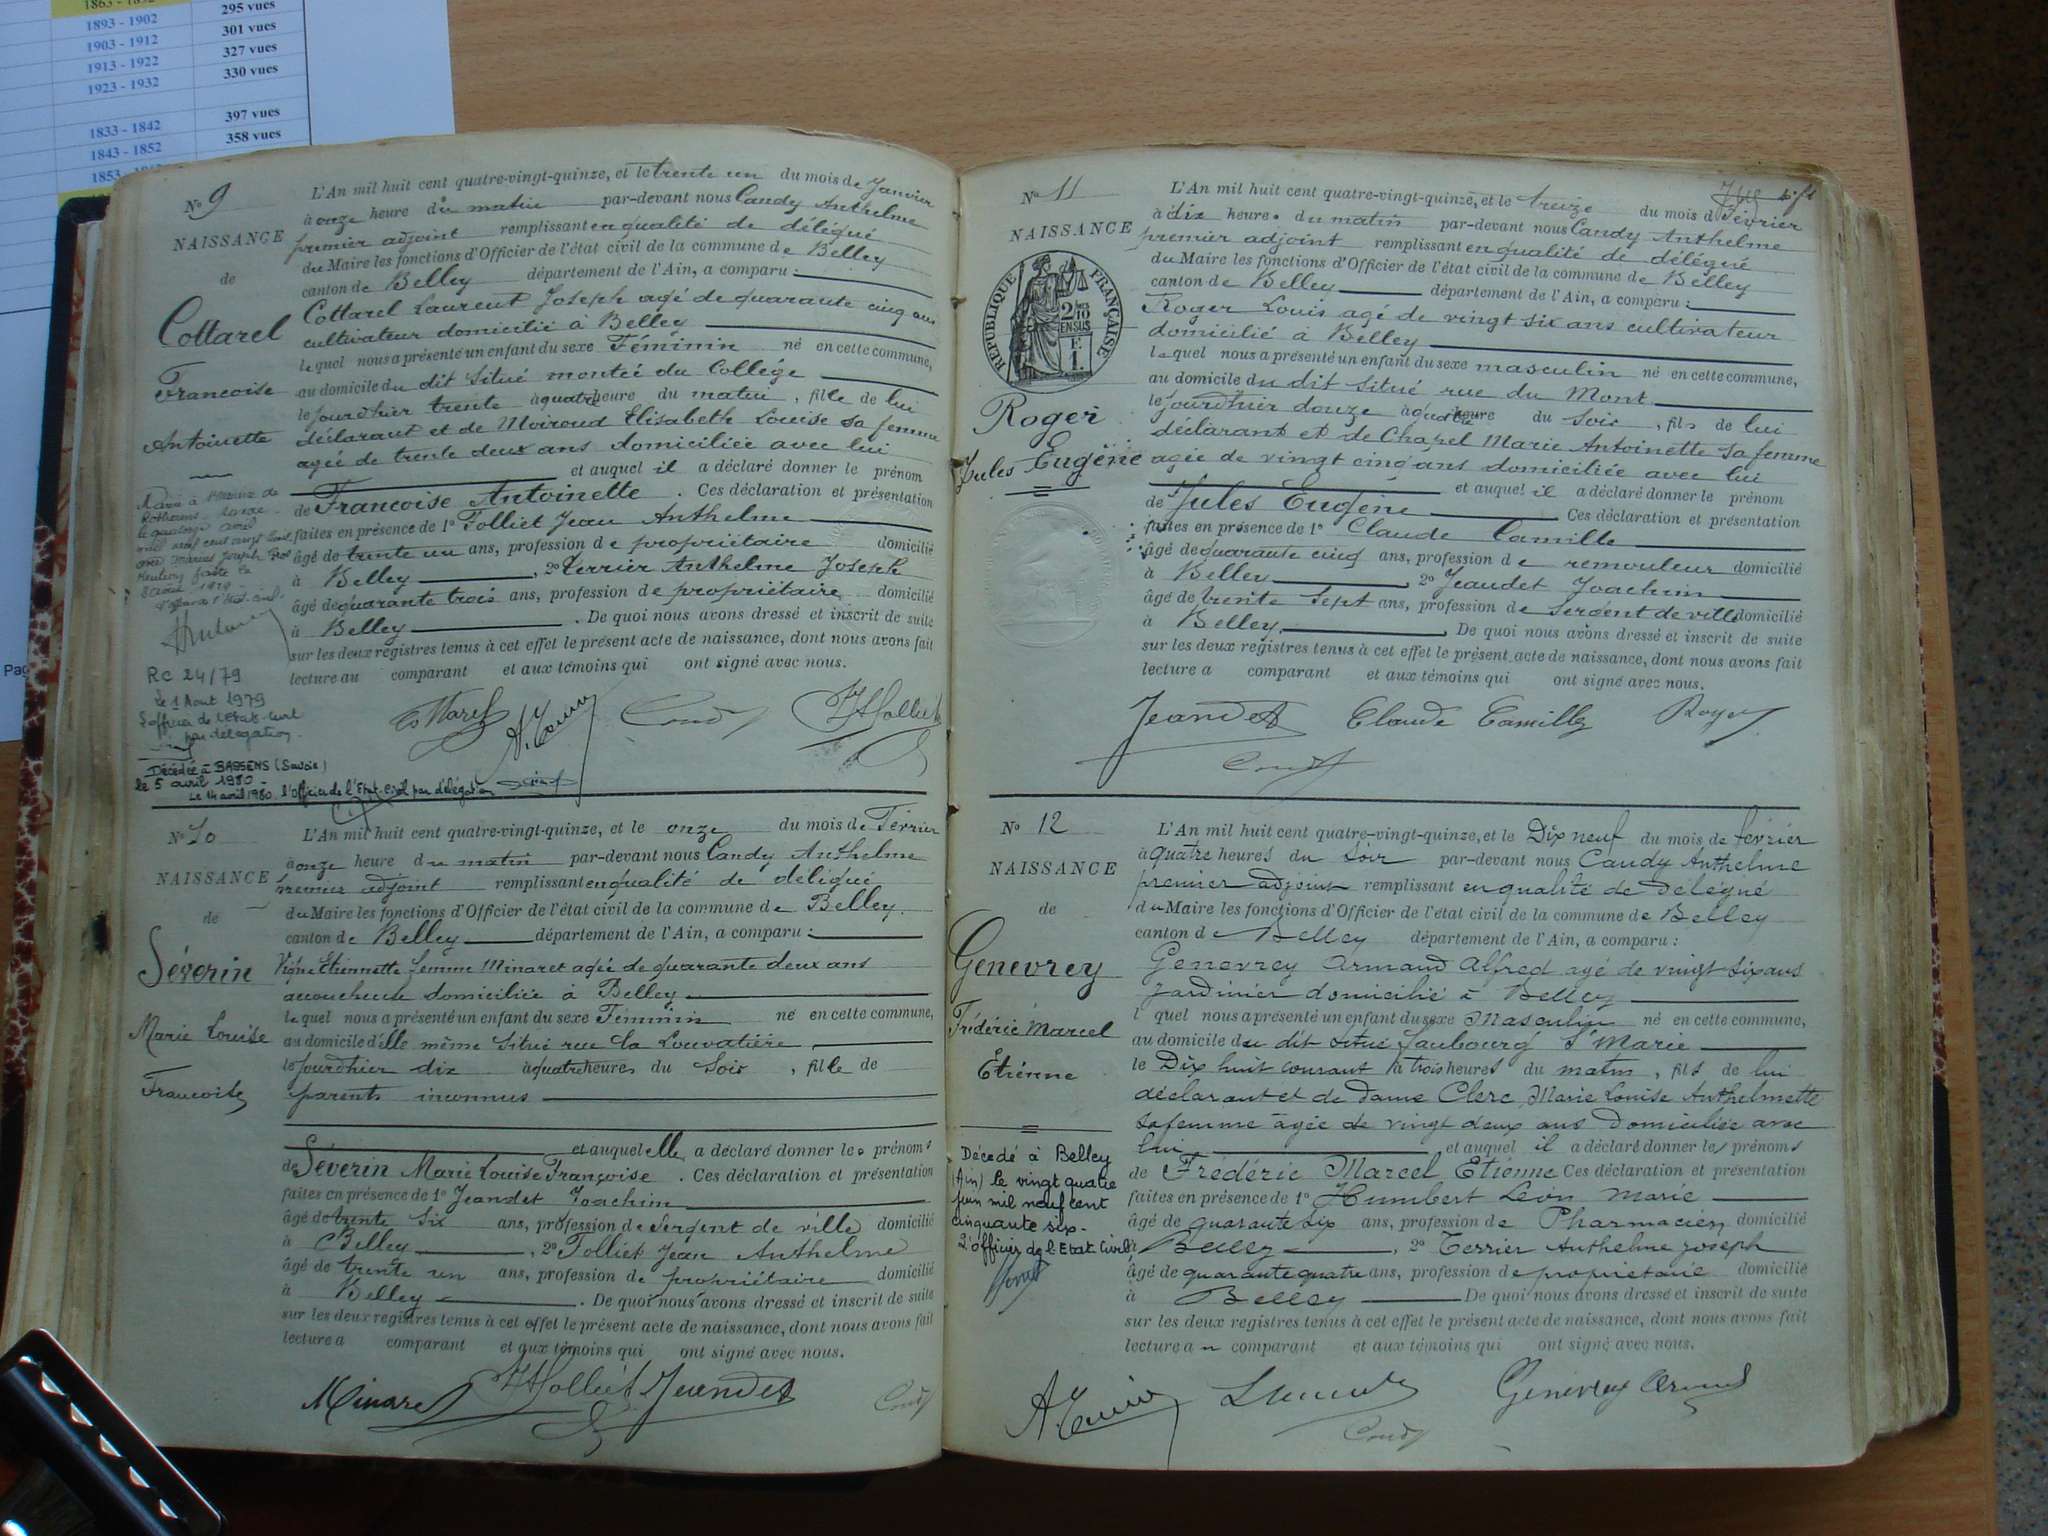 1863 - 1892
295 vues
1893 - 1902
301 vues
1903 - 1912
327 vues
1913 - 1922
330 vues
1923 - 1932
397 vues
1833 - 1842
358 vues
1843 - 1852
1853
Pag
N° 9
NAISSANCE
de
Cottarel
Francoise
Antoinette
L'An mil huit cent quatre-vingt-quinze, et le trente un du mois de Janvier
à onze heure du matin par-devant nous Candy Anthelme
premier adjoint remplissant en qualité de délégué
du Maire les fonctions d'Officier de l'état civil de la commune de Belley
canton de Belley département de l'Ain, a comparu :
Cottarel Laurent Joseph agé de quarante cinq ans
cultivateur domicilié à Belley
lequel nous a présenté un enfant du sexe Féminin né en cette commune,
au domicile du dit situé montée du Collége
le jourdhier trente à quatre heure du matin, fille de lui
déclarant et de Moiroud Elisabeth Louise sa femme
agée de trente deux ans domiciliée avec lui
et auquel il a déclaré donner le prénom
de Francoise Antoinette. Ces déclaration et présentation
faites en présence de 1° Tolliet Jean Anthelme
âgé de trente un ans, profession de propriétaire domicilié
à Belley, 2° Terrier Anthelme Joseph
âgé de quarante trois ans, profession de propriétaire domicilié
à Belley. De quoi nous avons dressé et inscrit de suite
sur les deux registres tenus à cet effet le présent acte de naissance, dont nous avons fait
lecture au comparant et aux témoins qui ont signé avec nous.
RC 24/79
Le 1 Aout 1979
L'officier de l'Etat-Civil
par délégation
Décédée à BASSENS (Savoie)
le 5 avril 1980
Le 14 avril 1980 l'Officier de l'Etat-Civil par délégation
Cottarel A. Terrier Candy JA Tolliet
N° 10
NAISSANCE
de
Séverin
Marie Louise
Francoise
L'An mil huit cent quatre-vingt-quinze, et le onze du mois de Février
à onze heure du matin par-devant nous Candy Anthelme
premier adjoint remplissant en qualité de délégué
du Maire les fonctions d'Officier de l'état civil de la commune de Belley
canton de Belley département de l'Ain, a comparu :
Vigne Etiennette femme Minaret agée de quarante deux ans
accoucheuse domiciliée à Belley
lequel nous a présenté un enfant du sexe Féminin né en cette commune,
au domicile d'elle même situé rue la Louvatière
le jourdhier dix à quatre heures du Soir, fille de
parents inconnus
et auquel elle a déclaré donner les prénoms
de Séverin Marie Louise Françoise. Ces déclaration et présentation
faites en présence de 1° Jeandet Joachim
âgé de trente six ans, profession de Sergent de ville domicilié
à Belley, 2° Tolliet Jean Anthelme
âgé de trente un ans, profession de propriétaire domicilié
à Belley. De quoi nous avons dressé et inscrit de suite
sur les deux registres tenus à cet effet le présent acte de naissance, dont nous avons fait
lecture a comparant et aux témoins qui ont signé avec nous.
Minaret JA Tolliet Jeandet Candy
N° 11
NAISSANCE
RÉPUBLIQUE FRANÇAISE
2/10
EN SUS
F.
1.
Roger
Jules Eugène
L'An mil huit cent quatre-vingt-quinze, et le treize du mois de Février
à dix heures du matin par-devant nous Candy Anthelme
premier adjoint remplissant en qualité de délégué
du Maire les fonctions d'Officier de l'état civil de la commune de Belley
canton de Belley département de l'Ain, a comparu :
Roger Louis agé de vingt six ans cultivateur
domicilié à Belley
lequel nous a présenté un enfant du sexe masculin né en cette commune,
au domicile du dit situé rue du Mont
le jourdhier douze à quatre heure du Soir, fils de lui
déclarant et de Chapel Marie Antoinette sa femme
agée de vingt cinq ans domiciliée avec lui
et auquel il a déclaré donner le prénom
de Jules Eugène Ces déclaration et présentation
faites en présence de 1° Claude Camille
âgé de quarante cinq ans, profession de remouleur domicilié
à Belley, 2° Jeandet Joachim
âgé de trente sept ans, profession de sergent de ville domicilié
à Belley. De quoi nous avons dressé et inscrit de suite
sur les deux registres tenus à cet effet le présent acte de naissance, dont nous avons fait
lecture a comparant et aux témoins qui ont signé avec nous.
Jeandet Claude Camille Roger
Candy
N° 12
NAISSANCE
de
Genevrey
Frédéric Marcel
Etiénne
Décédé à Belley
(Ain) le vingt quatre
juin mil neuf cent
cinquante six.
L'officier de l'Etat Civil
L'An mil huit cent quatre-vingt-quinze, et le Dix neuf du mois de février
à quatre heures du soir par-devant nous Candy Anthelme
premier adjoint remplissant en qualité de délégué
du Maire les fonctions d'Officier de l'état civil de la commune de Belley
canton de Belley département de l'Ain, a comparu :
Genevrey Armand Alfred agé de vingt six ans
jardinier domicilié à Belley
l quel nous a présenté un enfant du sexe Masculin né en cette commune,
au domicile du dit situé faubourg St Marie
le Dix huit courant à trois heures du matin, fils de lui
déclarant et de dame Clerc Marie Louise Anthelmette
sa femme âgée de vingt deux ans domiciliée avec
lui et auquel il a déclaré donner les prénoms
de Frédéric Marcel Etiénne Ces déclaration et présentation
faites en présence de 1° Humbert Léon Marie
âgé de quarante six ans, profession de Pharmacien domicilié
à Belley, 2° Terrier Anthelme Joseph
âgé de quarante quatre ans, profession de propriétaire domicilié
à Belley De quoi nous avons dressé et inscrit de suite
sur les deux registres tenus à cet effet le présent acte de naissance, dont nous avons fait
lecture au comparant et aux témoins qui ont signé avec nous.
A. Terrier Genevrey Armand
Candy